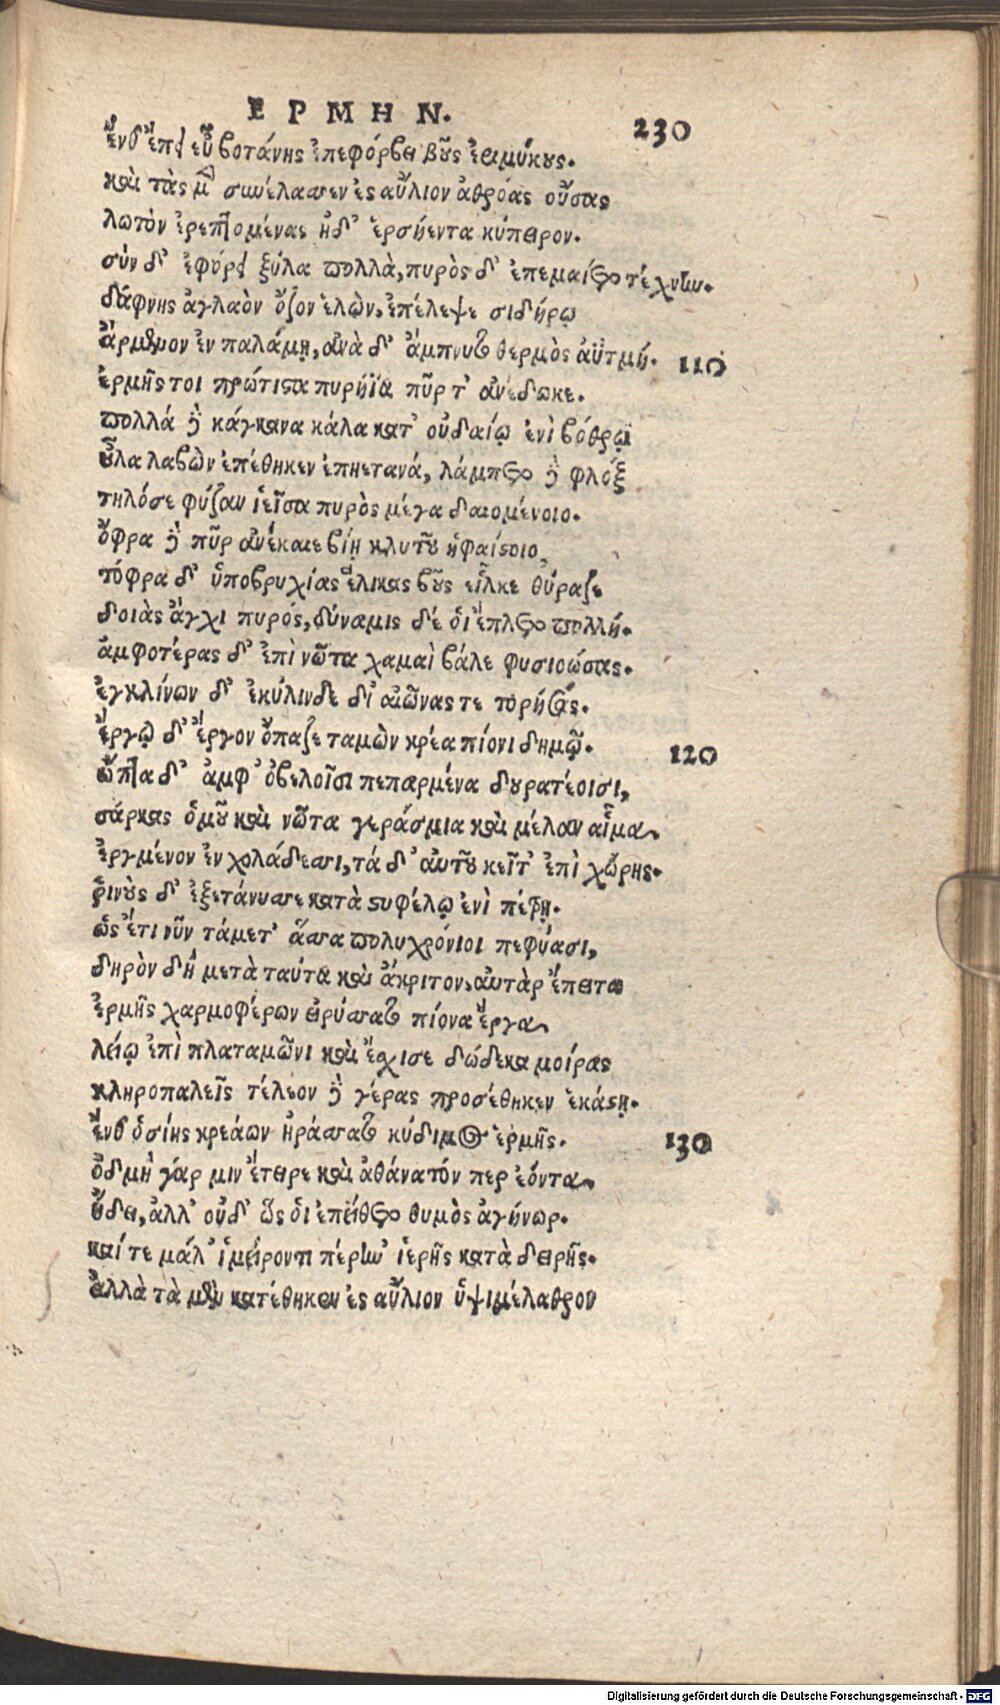 ΕΡΜΗΝ.
230
ἔνθ' ἐπεὶ εὖ βοτάνης ἐπεφόρβει βοῦς ἐριμύκους.
καὶ τὰς μὲν συνέλασσεν ἐς αὔλιον ἀθρόας οὔσας
λωτὸν ἐρεπτομένας ἠδ' ἑρσήεντα κύπειρον.
σὺν δ' ἐφόρει ξύλα πολλὰ, πυρὸς δ' ἐπεμαίετο τέχνην.
δάφνης ἀγλαὸν ὄζον ἑλὼν, ἐπέλεψε σιδήρῳ
ἄρμενον ἐν παλάμῃ, ἀνὰ δ' ἄμπνυτο θερμὸς ἀϋτμή. 110
ἑρμῆς τοι πρώτιστα πυρήϊα πῦρ τ' ἀνέδωκε.
πολλά δὲ κάγκανα κάλα κατ' οὐδαίῳ ἐνὶ βόθρῳ
οὖλα λαβὼν ἐπέθηκεν ἐπηετανά, λάμπετο δὲ φλόξ
τηλόσε φύζαν ἱεῖσα πυρὸς μέγα δαιομένοιο.
ὄφρα δὲ πῦρ ἀνέκαιε βίη κλυτοῦ ἡφαίστοιο,
τόφρα δ' ὑποβρυχίας ἕλικας βοῦς εἷλκε θύραζε
δοιὰς ἄγχι πυρός, δύναμις δέ οἱ ἔπλετο πολλή.
ἀμφοτέρας δ' ἐπὶ νῶτα χαμαὶ βάλε φυσιοώσας.
ἐγκλίνων δ' ἐκύλινδε δι' αἰῶνας τε τορήσας.
ἔργῳ δ' ἔργον ὄπαζε ταμὼν κρέα πίονι δημῷ. 120
ὤπτα δ' ἀμφ' ὀβελοῖσι πεπαρμένα δουρατέοισι,
σάρκας ὁμοῦ καὶ νῶτα γεράσμια καὶ μέλαν αἷμα
ἐργμένον ἐν χολάδεσσι, τά δ' αὐτοῦ κεῖτ' ἐπὶ χώρης.
ῥινοὺς δ' ἐξετάνυσσε κατὰ στυφέλῳ ἐνὶ πέτρῃ.
ὡς ἔτι νῦν τάμετ' ἄσσα πολυχρόνιοι πεφύασι,
δηρὸν δὴ μετὰ ταύτα καὶ ἄκριτον, αὐτὰρ ἔπειτα
ἑρμῆς χαρμοφέρων εἰρύσσατο πίονα ἔργα
λείῳ ἐπὶ πλαταμῶνι καὶ ἔσχισε δώδεκα μοίρας
κληροπαλεῖς τέλεον δὲ γέρας προσέθηκεν ἑκάστῃ.
ἔνθ' ὁσίης κρεάων ἠράσσατο κύδιμος ἑρμῆς. 130
ὀδμὴ γάρ μιν ἔτειρε καὶ ἀθάνατόν περ ἐόντα
ἥδει, ἀλλ' οὐδ' ὥς οἱ ἐπείθετο θυμὸς ἀγήνωρ.
καί τε μάλ' ἱμείροντι πέρην' ἱερῆς κατὰ δειρῆς.
ἀλλὰ τὰ μὲν κατέθηκεν ἐς αὔλιον ὑψιμέλαθρον
Digitalisierung gefördert durch die Deutsche Forschungsgemeinschaft - DFG